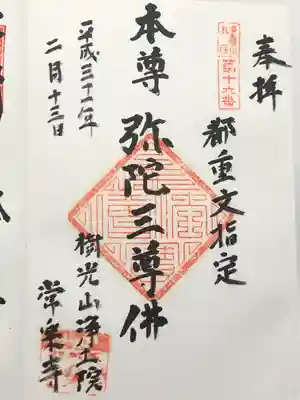 奉拝
第十六番
都重文指定
本尊 弥陀三尊佛
樹光山浄土院
常楽寺
平成三十一年
二月十三日